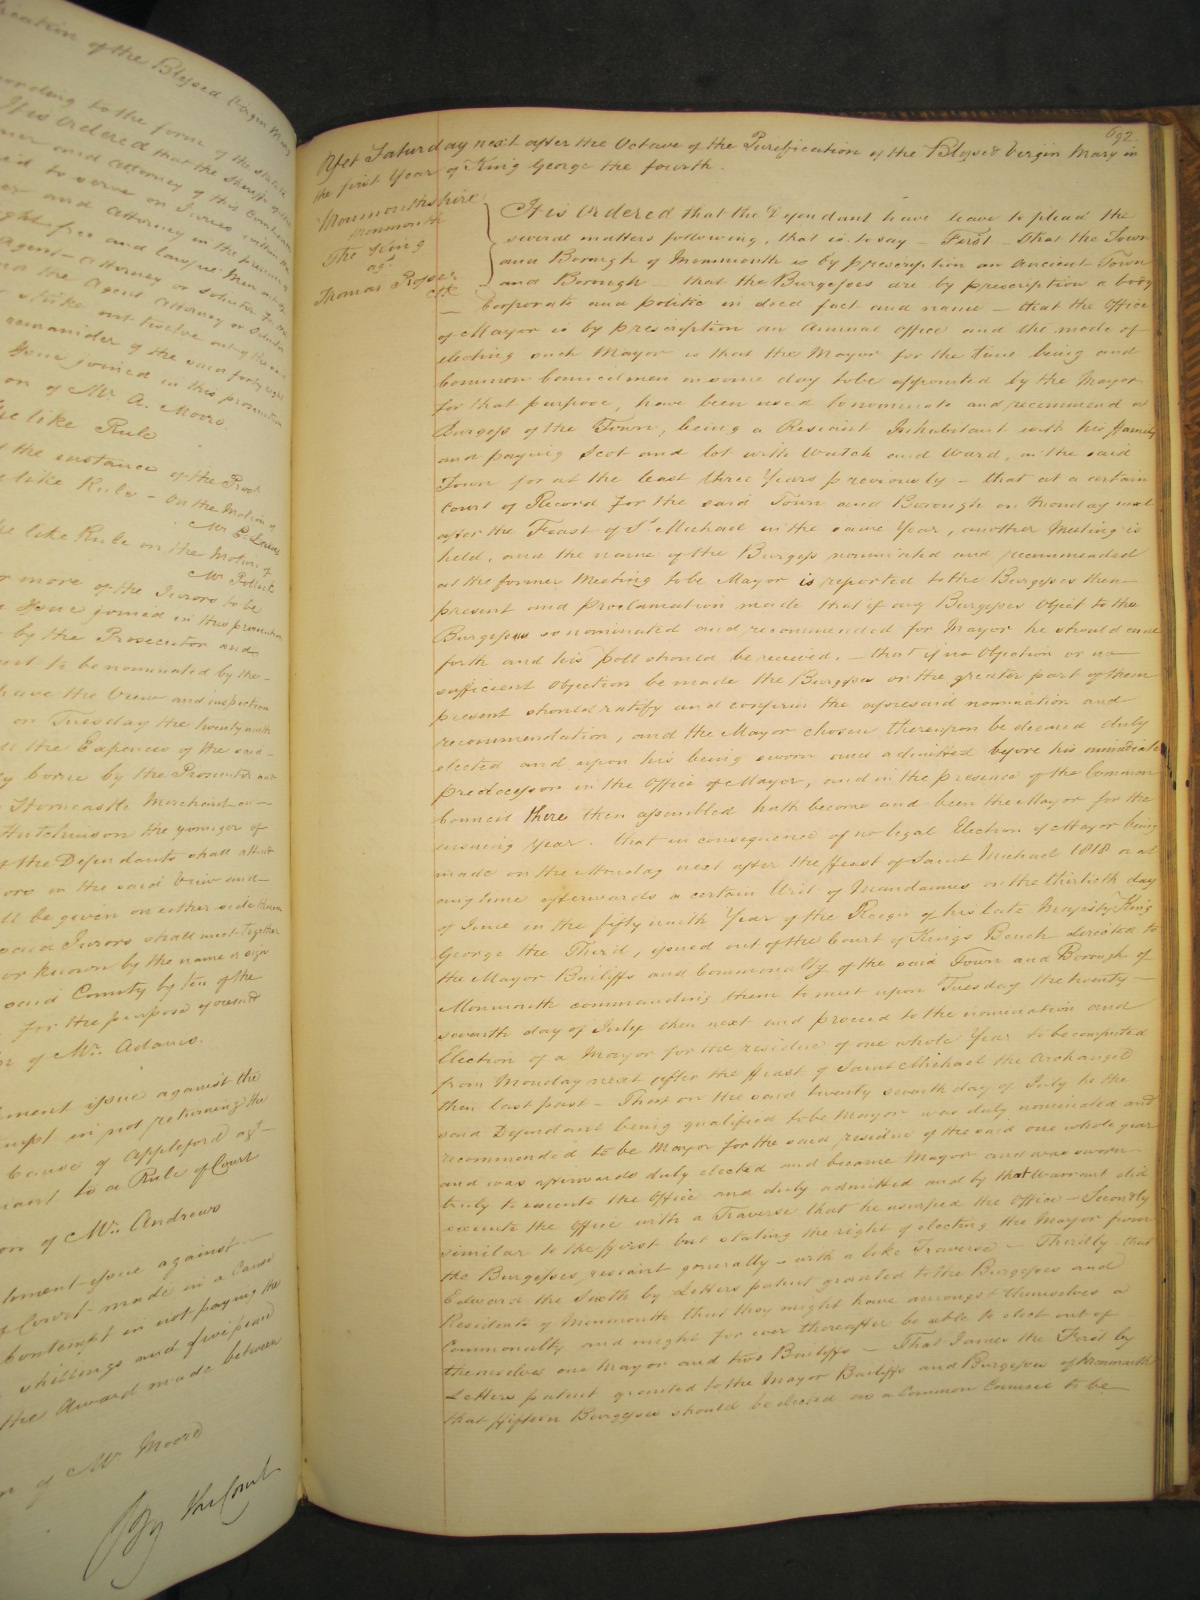 ication of the Blessed Virgin Mary
ording to the form of the Statute
It is Ordered that the Sheriff of the
and Attorney of this
to serve on Juries within the
and Attorney in the
free and lawful Men
Agent Attorney or Solicitor
the Agent Attorney or
strike out twelve out of the
remainder of the said forty eight
Issue joined in this prosecution
on of Mr. A. Moore.
like Rule
the instance of the Prosr
like Rule - On the Motion of
Mr. E. Lawes
like Rule on the Motion of
Mr. Pollock
or more of the Jurors to be
Issue joined in this prosecution
by the Prosecutor and
to be nominated by the
have the View and inspection
on Tuesday the twenty ninth
the Expences of the said
borne by the Prosecutor
Horncastle Merchant
Hutchinson the younger of
the Defendants shall attend
ors in the said View and
be given on either side
said Jurors shall meet together
or known by the name or sign
said County by ten of the
for the purpose aforesaid
of Mr. Adams.
ment issue against the
in not returning the
Cause of Appleford agt
to a Rule of Court
on of Mr. Andrews
ment issue against
Court made in a Cause
Contempt in not paying the
shillings and fivepence
the Award made between
of Mr. Moore
By the Court
692.
Yet Saturday next after the Octave of the Purification of the Blessed Virgin Mary in
the first Year of King George the fourth.
Monmouthshire
Monmouth
The King
agt
Thomas
It is Ordered that the Defendant have leave to plead the
several matters following, that is to say - First - That the Town
and Borough of Monmouth is by prescription an Ancient Town
and Borough - that the Burgesses are by prescription a body
Corporate and politic in deed fact and name - that the Office
of Mayor is by prescription an Annual Office and the mode of
electing such Mayor is that the Mayor for the time being and
Common Councilmen on some day to be appointed by the Mayor
for that purpose, have been used to nominate and recommend a
Burgess of the Town, being a Resiant Inhabitant with his family
and paying Scot and lot with Watch and Ward, in the said
Town for at the least three Years previously - that at a certain
Court of Record for the said Town and Borough on Monday next
after the Feast of St. Michael in the same Year, another Meeting is
held, and the name of the Burgess nominated and recommended
at the former Meeting to be Mayor is reported to the Burgesses then
present and Proclamation made that if any Burgesses object to the
Burgess so nominated and recommended for Mayor he should come
forth and his poll should be received. - that if no Objection or no
sufficient Objection be made the Burgesses or the greater part of them
present should ratify and confirm the aforesaid nomination and
recommendation, and the Mayor chosen thereupon be declared duly
elected and upon his being sworn and admitted before his immediate
Predecessor in the Office of Mayor, and in the presence of the Common
Council there then assembled hath become and been the Mayor for the
ensuing Year. that in consequence of no legal Election of Mayor being
made on the Monday next after the Feast of Saint Michael 1818 or at
any time afterwards a certain Writ of Mandamus on the thirtieth day
of June in the fifty ninth Year of the Reign of his late Majesty King
George the Third, issued out of the Court of Kings Bench directed to
the Mayor Bailiffs and Commonalty of the said Town and Borough of
Monmouth commanding them to meet upon Tuesday the twenty
seventh day of July then next and proceed to the nomination and
Election of a Mayor for the residue of one whole Year to be computed
from Monday next after the Feast of Saint Michael the Archangel
then last past - That on the said twenty seventh day of July he the
said Defendant being qualified to be Mayor was duly nominated and
recommended to be Mayor for the said residue of the said one whole year
and was afterwards duly elected and became Mayor and was sworn
truly to execute the Office and duly admitted and by that Warrant did
execute the Office with a Traverse that he usurped the Office - Secondly
similar to the first but stating the right of electing the Mayor from
the Burgesses resiant generally - with a like Traverse - Thirdly - that
Edward the Sixth by Letters patent granted to the Burgesses and
Residents of Monmouth that they might have amongst themselves a
Commonalty and might for ever thereafter be able to elect out of
themselves one Mayor and two Bailiffs - That James the First by
Letters patent granted to the Mayor Bailiffs and Burgesses of Monmouth
that fifteen Burgesses should be elected as a Common Council to be